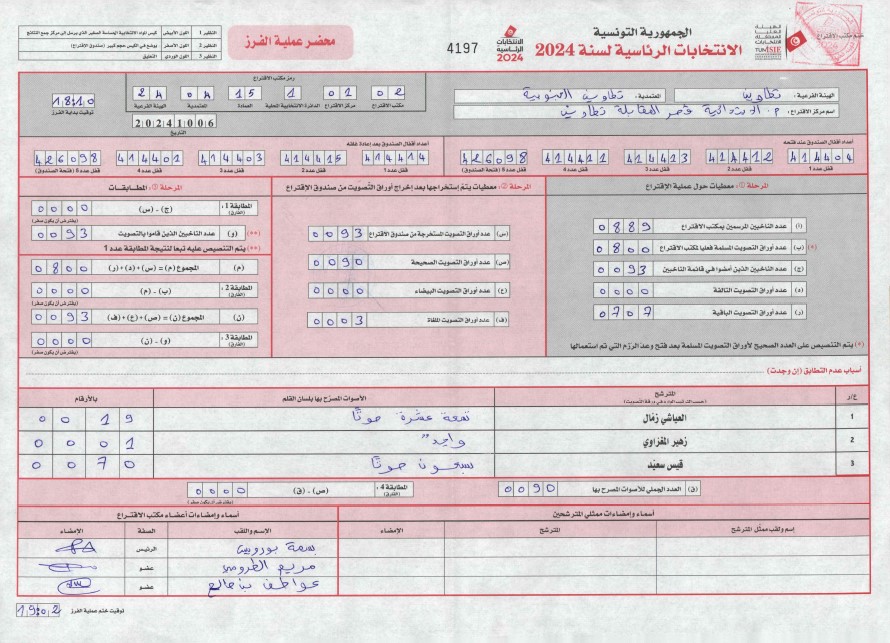 الجمهورية التونسية
الانتخابات الرئاسية لسنة 2024
الهيئة
العليا
المستقلة
للانتخابات
TUNISIE
ISIE
ختم مكتب الاقتراع
الانتخابات
الرئاسية
2024
4197
محضر عملية الفرز
النظير 1 اللون الأبيض
النظير 2 اللون الأصفر يوضع في الكيس حجم كبير (صندوق الإقتراع)
النظير 3 اللون الوردي التعليق
الهيئة الفرعية : تطاوين المعتمدية : تطاوين الجنوبية
اسم مركز الإقتراع : م. الابتدائية قصر المقابلة تطاوين
رمز مكتب الاقتراع
02 01 1 15 04 24
مكتب الاقتراع مركز الاقتراع الدائرة الانتخابية المحلية العمادة المعتمدية الهيئة الفرعية
20241006
التاريخ
18:10
توقيت بداية الفرز
أعداد أقفال الصندوق عند فتحه
414404 414412 414413 414411 426098
قفل عدد 1 قفل عدد 2 قفل عدد 3 قفل عدد 4 قفل عدد 5 (فتحة الصندوق)
أعداد أقفال الصندوق بعد إعادة غلقه
414414 414415 414403 414401 426098
قفل عدد 1 قفل عدد 2 قفل عدد 3 قفل عدد 4 قفل عدد 5 (فتحة الصندوق)
المرحلة ①: معطيات حول عملية الإقتراع
(أ) عدد الناخبين المرسمين بمكتب الاقتراع 0889
(*) (ب) عدد أوراق التصويت المسلمة فعليا لمكتب الاقتراع 0800
(ج) عدد الناخبين الذين أمضوا في قائمة الناخبين 0093
(د) عدد أوراق التصويت التالفة 0000
(ر) عدد أوراق التصويت الباقية 0707
(*) يتم التنصيص على العدد الصحيح لأوراق التصويت المسلمة بعد فتح وعد الرزم التي تم استعمالها
المرحلة ②: معطيات يتم إستخراجها بعد إخراج أوراق التصويت من صندوق الإقتراع
(س) عدد أوراق التصويت المستخرجة من صندوق الاقتراع 0093
(ص) عدد أوراق التصويت الصحيحة 0090
(ع) عدد أوراق التصويت البيضاء 0000
(ف) عدد أوراق التصويت الملغاة 0003
المرحلة ③: المطابقات
المطابقة 1 : (الفارق) (ج) - (س) 0000
(يفترض أن يكون صفر)
(**) (و) عدد الناخبين الذين قاموا بالتصويت 0093
(**) يتم التنصيص عليه تبعا لنتيجة المطابقة عدد 1
(م) المجموع (م) = (س) + (د) + (ر) 0800
المطابقة 2 : (الفارق) (ب) - (م) 0000
(يفترض أن يكون صفر)
(ن) المجموع (ن) = (ص) + (ع) + (ف) 0093
المطابقة 3 : (الفارق) (و) - (ن) 0000
(يفترض أن يكون صفر)
أسباب عدم التطابق (إن وجدت)
ع/ر المترشح الأصوات المصرّح بها بلسان القلم بالأرقام
(حسب الترتيب الوارد في ورقة التصويت)
1 العياشي زمّال تسعة عشرة صوتًا 0019
2 زهير المغزاوي واحد 0001
3 قيس سعيّد سبعون صوتًا 0070
(ق) العدد الجملي للأصوات المصرح بها 0090
المطابقة 4 : (الفارق) (ص) - (ق) 0000
(يفترض أن يكون صفر)
أسماء وإمضاءات ممثلي المترشحين
إسم ولقب ممثل المترشح المترشح الإمضاء
أسماء وإمضاءات أعضاء مكتب الاقتراع
الاسم واللقب الصفة الإمضاء
بسمة الرئيس
مريم عضو
عواطف بن صالح عضو
توقيت ختم عملية الفرز 19:02